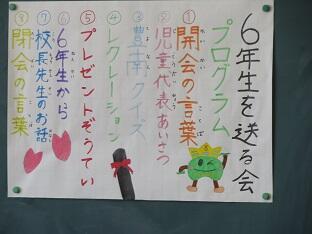 6年生を送る会
プログラム
①開会の言葉
②児童代表あいさつ
③豊南クイズ
④レクレーション
⑤プレゼントぞうてい
⑥6年生から
⑦校長先生のお話
⑧閉会の言葉